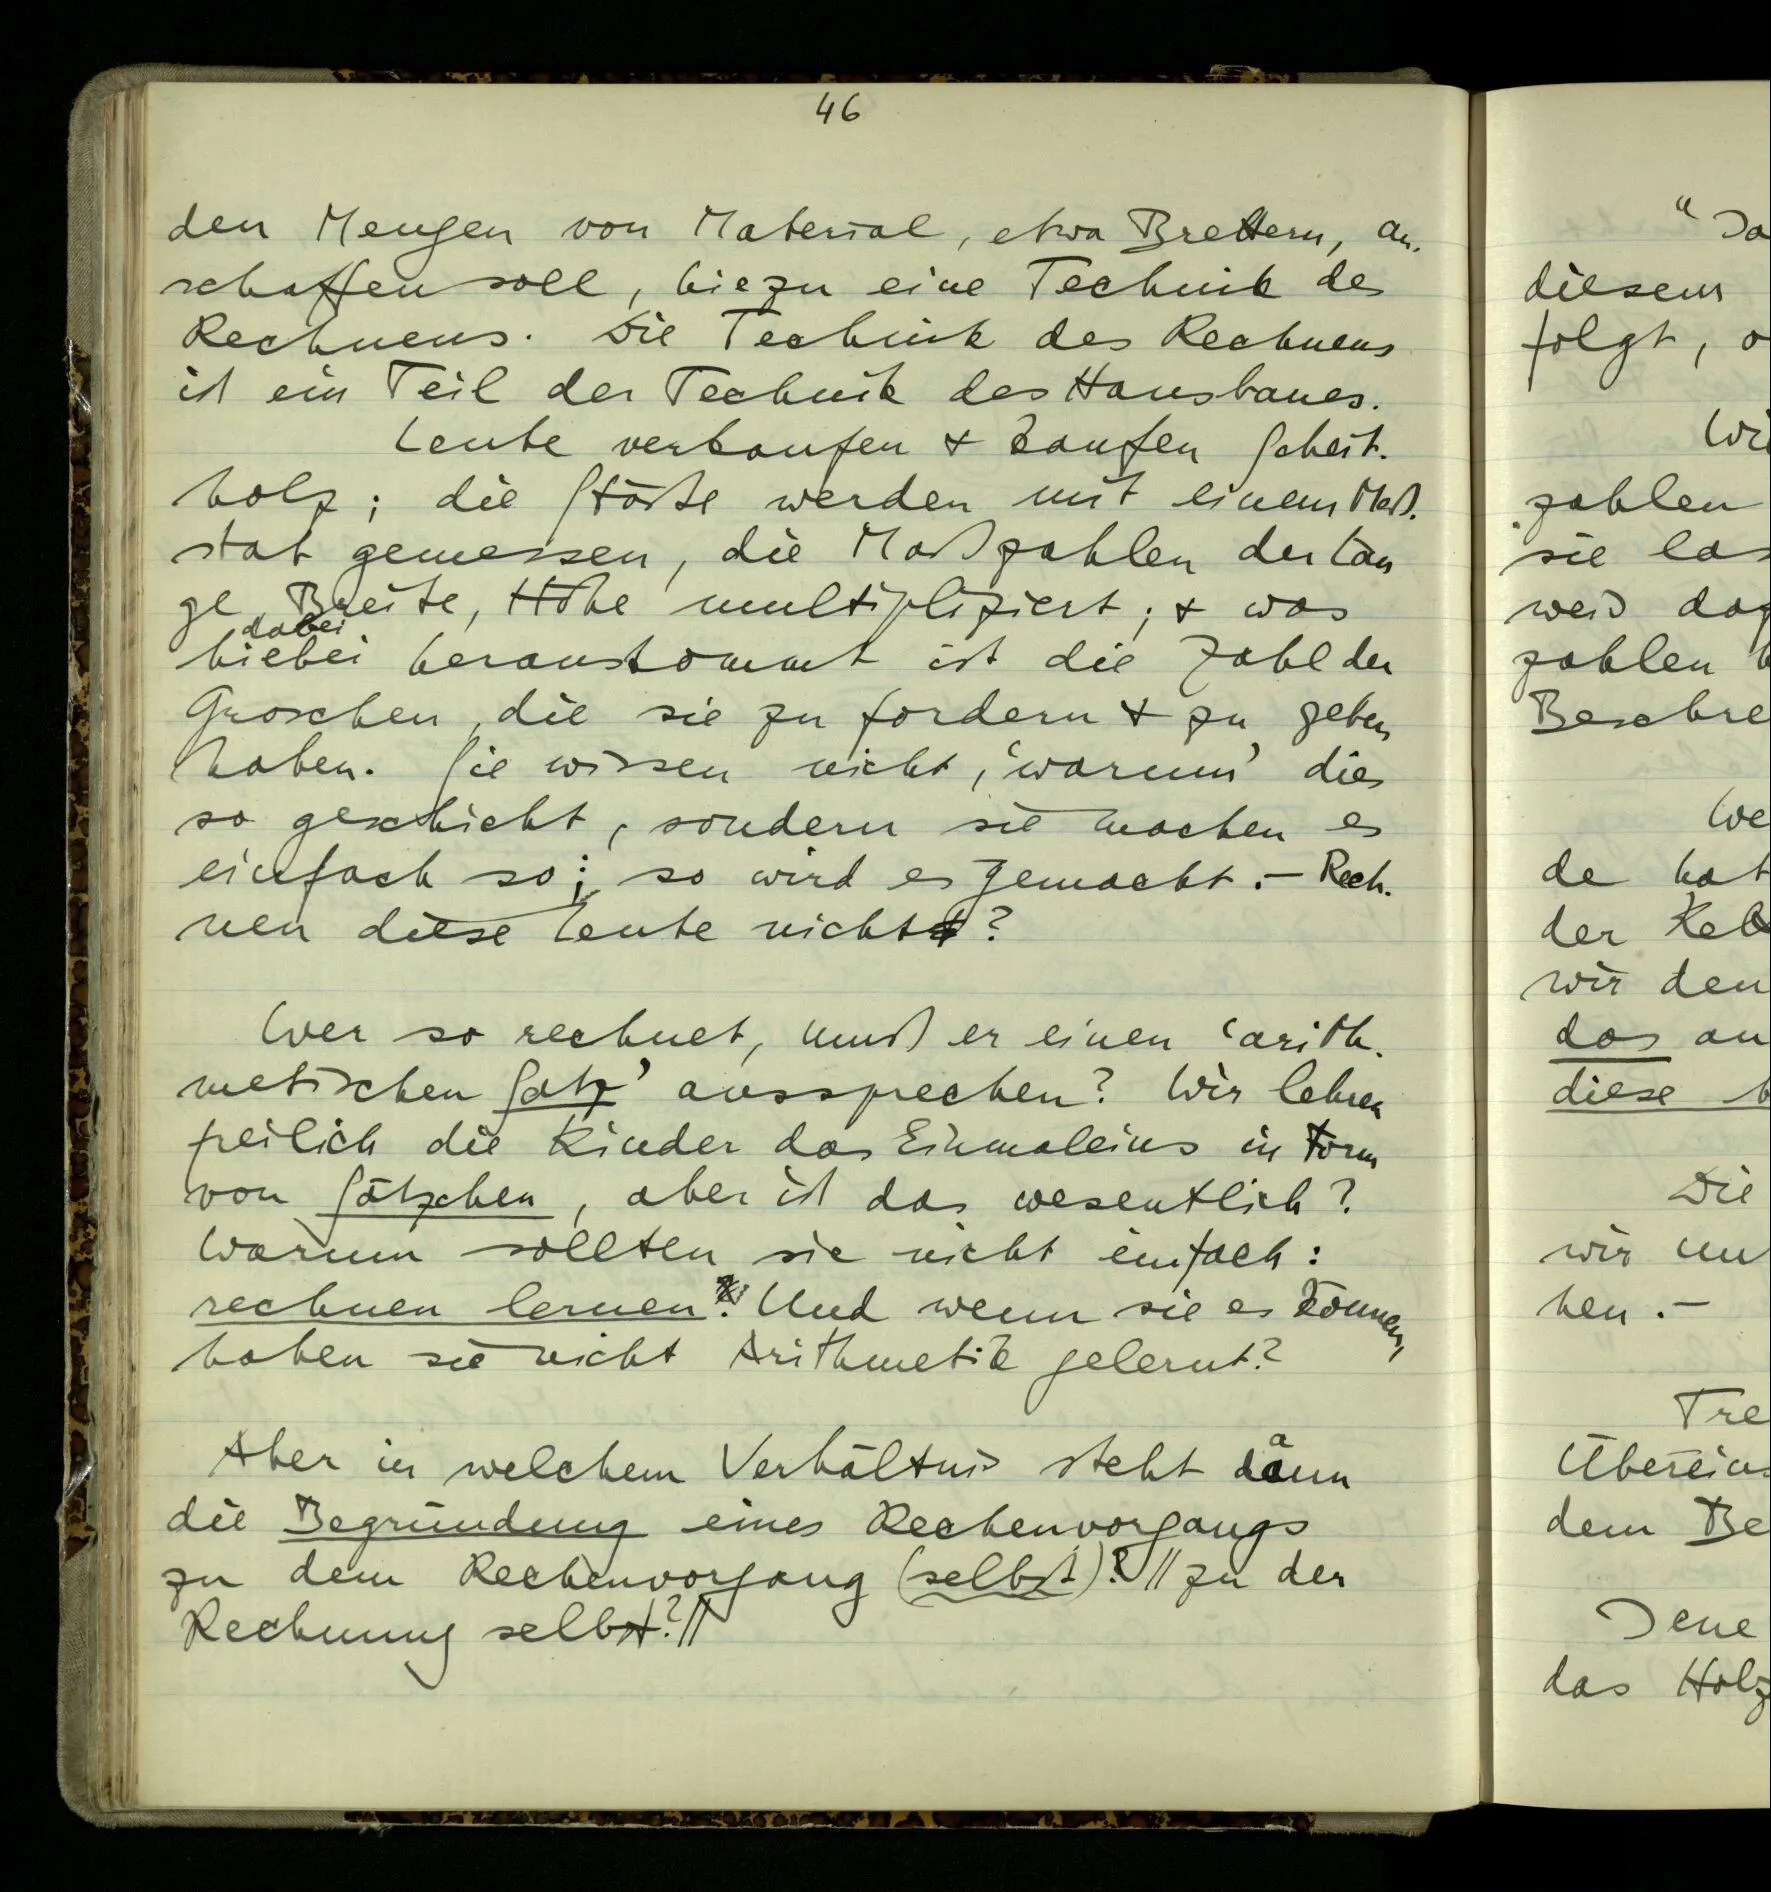 46
den Mengen von Material, etwa Brettern, an-
schaffen soll, hiezu eine Technik des
Rechnens. Die Technik des Rechnens
ist ein Teil der Technik des Hausbaues.
Leute verkaufen + kaufen Scheit-
holz; die Stöße werden mit einem Maß-
stab gemessen, die Maßzahlen der Län
ge, Breite, Höhe multipliziert; + was
dabei
hiebei herauskommt ist die Zahl der
Groschen, die sie zu fordern + zu geben
haben. Sie wissen nicht, ‘warum’ dies
so geschieht, sondern sie machen es
einfach so; so wird es gemacht. – Rech-
nen diese Leute nicht?
Wer so rechnet, muß er einen ‘arith-
metischen Satz’ aussprechen? Wir lehren
freilich die Kinder das Einmaleins in Form
von Sätzchen, aber ist das wesentlich?
Warum sollten sie nicht einfach:
rechnen lernen? Und wenn sie es können,
haben sie nicht Arithmetik gelernt?
Aber in welchem Verhältnis steht dann
die Begründung eines Rechenvorgangs
zu dem Rechenvorgang (selbst)? // zu der
Rechnung selbst? //
"Ja
diesem
folgt, o
Wi
zahlen
sie las
weis
zahlen
Beschre
We
de hat
der
wir den
das an
diese
Die
wir un
hen. –
Tre
Überein
dem Be
Jene
das Holz